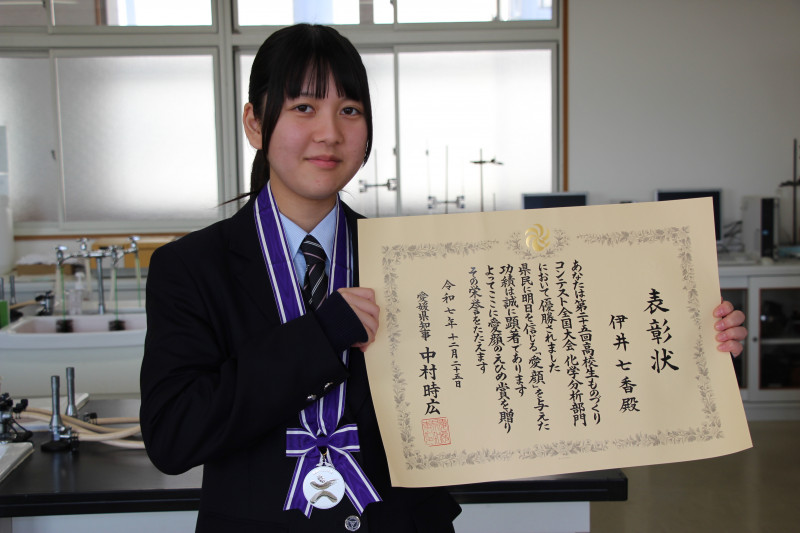 表彰状
伊井七香殿
あなたは第二十五回高校生ものづくり
コンテスト全国大会化学分析部門
において優勝されました
県民に明日を信じる「愛顔」を与えた
功績は誠に顕著であります
よってここに愛顔のえひめ賞を贈り
その栄誉をたたえます
令和七年十二月二十五日
愛媛県知事 中村時広